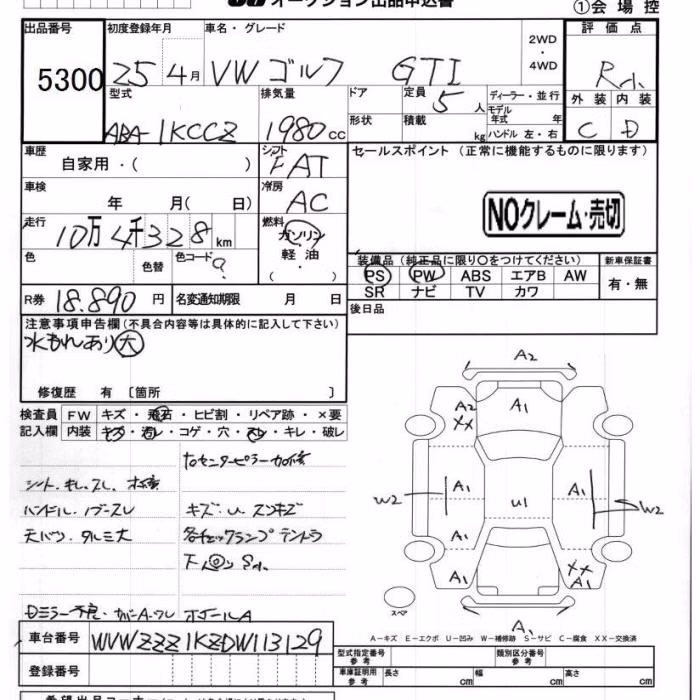 オークション出品申込書
①会場控
出品番号 初度登録年月 車名・グレード 2WD・4WD 評価点
5300 25年4月 VW ゴルフ GTI R小
型式 排気量 ドア 定員 5人 ディーラー・並行 外装 内装
ABA-1KCCZ 1980cc 形状 積載 kg モデル年式 年 ハンドル 左・右 C D
車歴 自家用・( ) シフト FAT セールスポイント (正常に機能するものに限ります)
車検 年 月(日) 冷房 AC
NOクレーム・売切
走行 10万4千328km 燃料 ガソリン 軽油 ( )
装備品 (純正品に限り○をつけてください) 新車保証書
色 色替 色コード PS PW ABS エアB AW 有・無
SR ナビ TV カワ
R券 18.890円 名変通知期限 月 日 後日品
注意事項申告欄 (不具合内容等は具体的に記入して下さい)
水もれあり大
修復歴 有 〔箇所 〕
検査員 FW キズ・飛石・ヒビ割・リペア跡・×要
記入欄 内装 キズ・汚レ・コゲ・穴・スレ・キレ・破レ
シート、キレ、スレ、
ハンドル、 キズ、U、スンキズ
天バリ、タルミ大 各チェックランプテントウ
A2
A2 XX A1
W2 A1 U1 A1 W2
A1
A1 XX A1
スペア
A
A－キズ E－エクボ U－凹み W－補修跡 S－サビ C－腐食 XX－交換済
車台番号 WVWZZZ1KZDW113129
登録番号
型式指定番号 参考 類別区分番号 参考
車庫証明用 参考 長さ cm 幅 cm 高さ cm